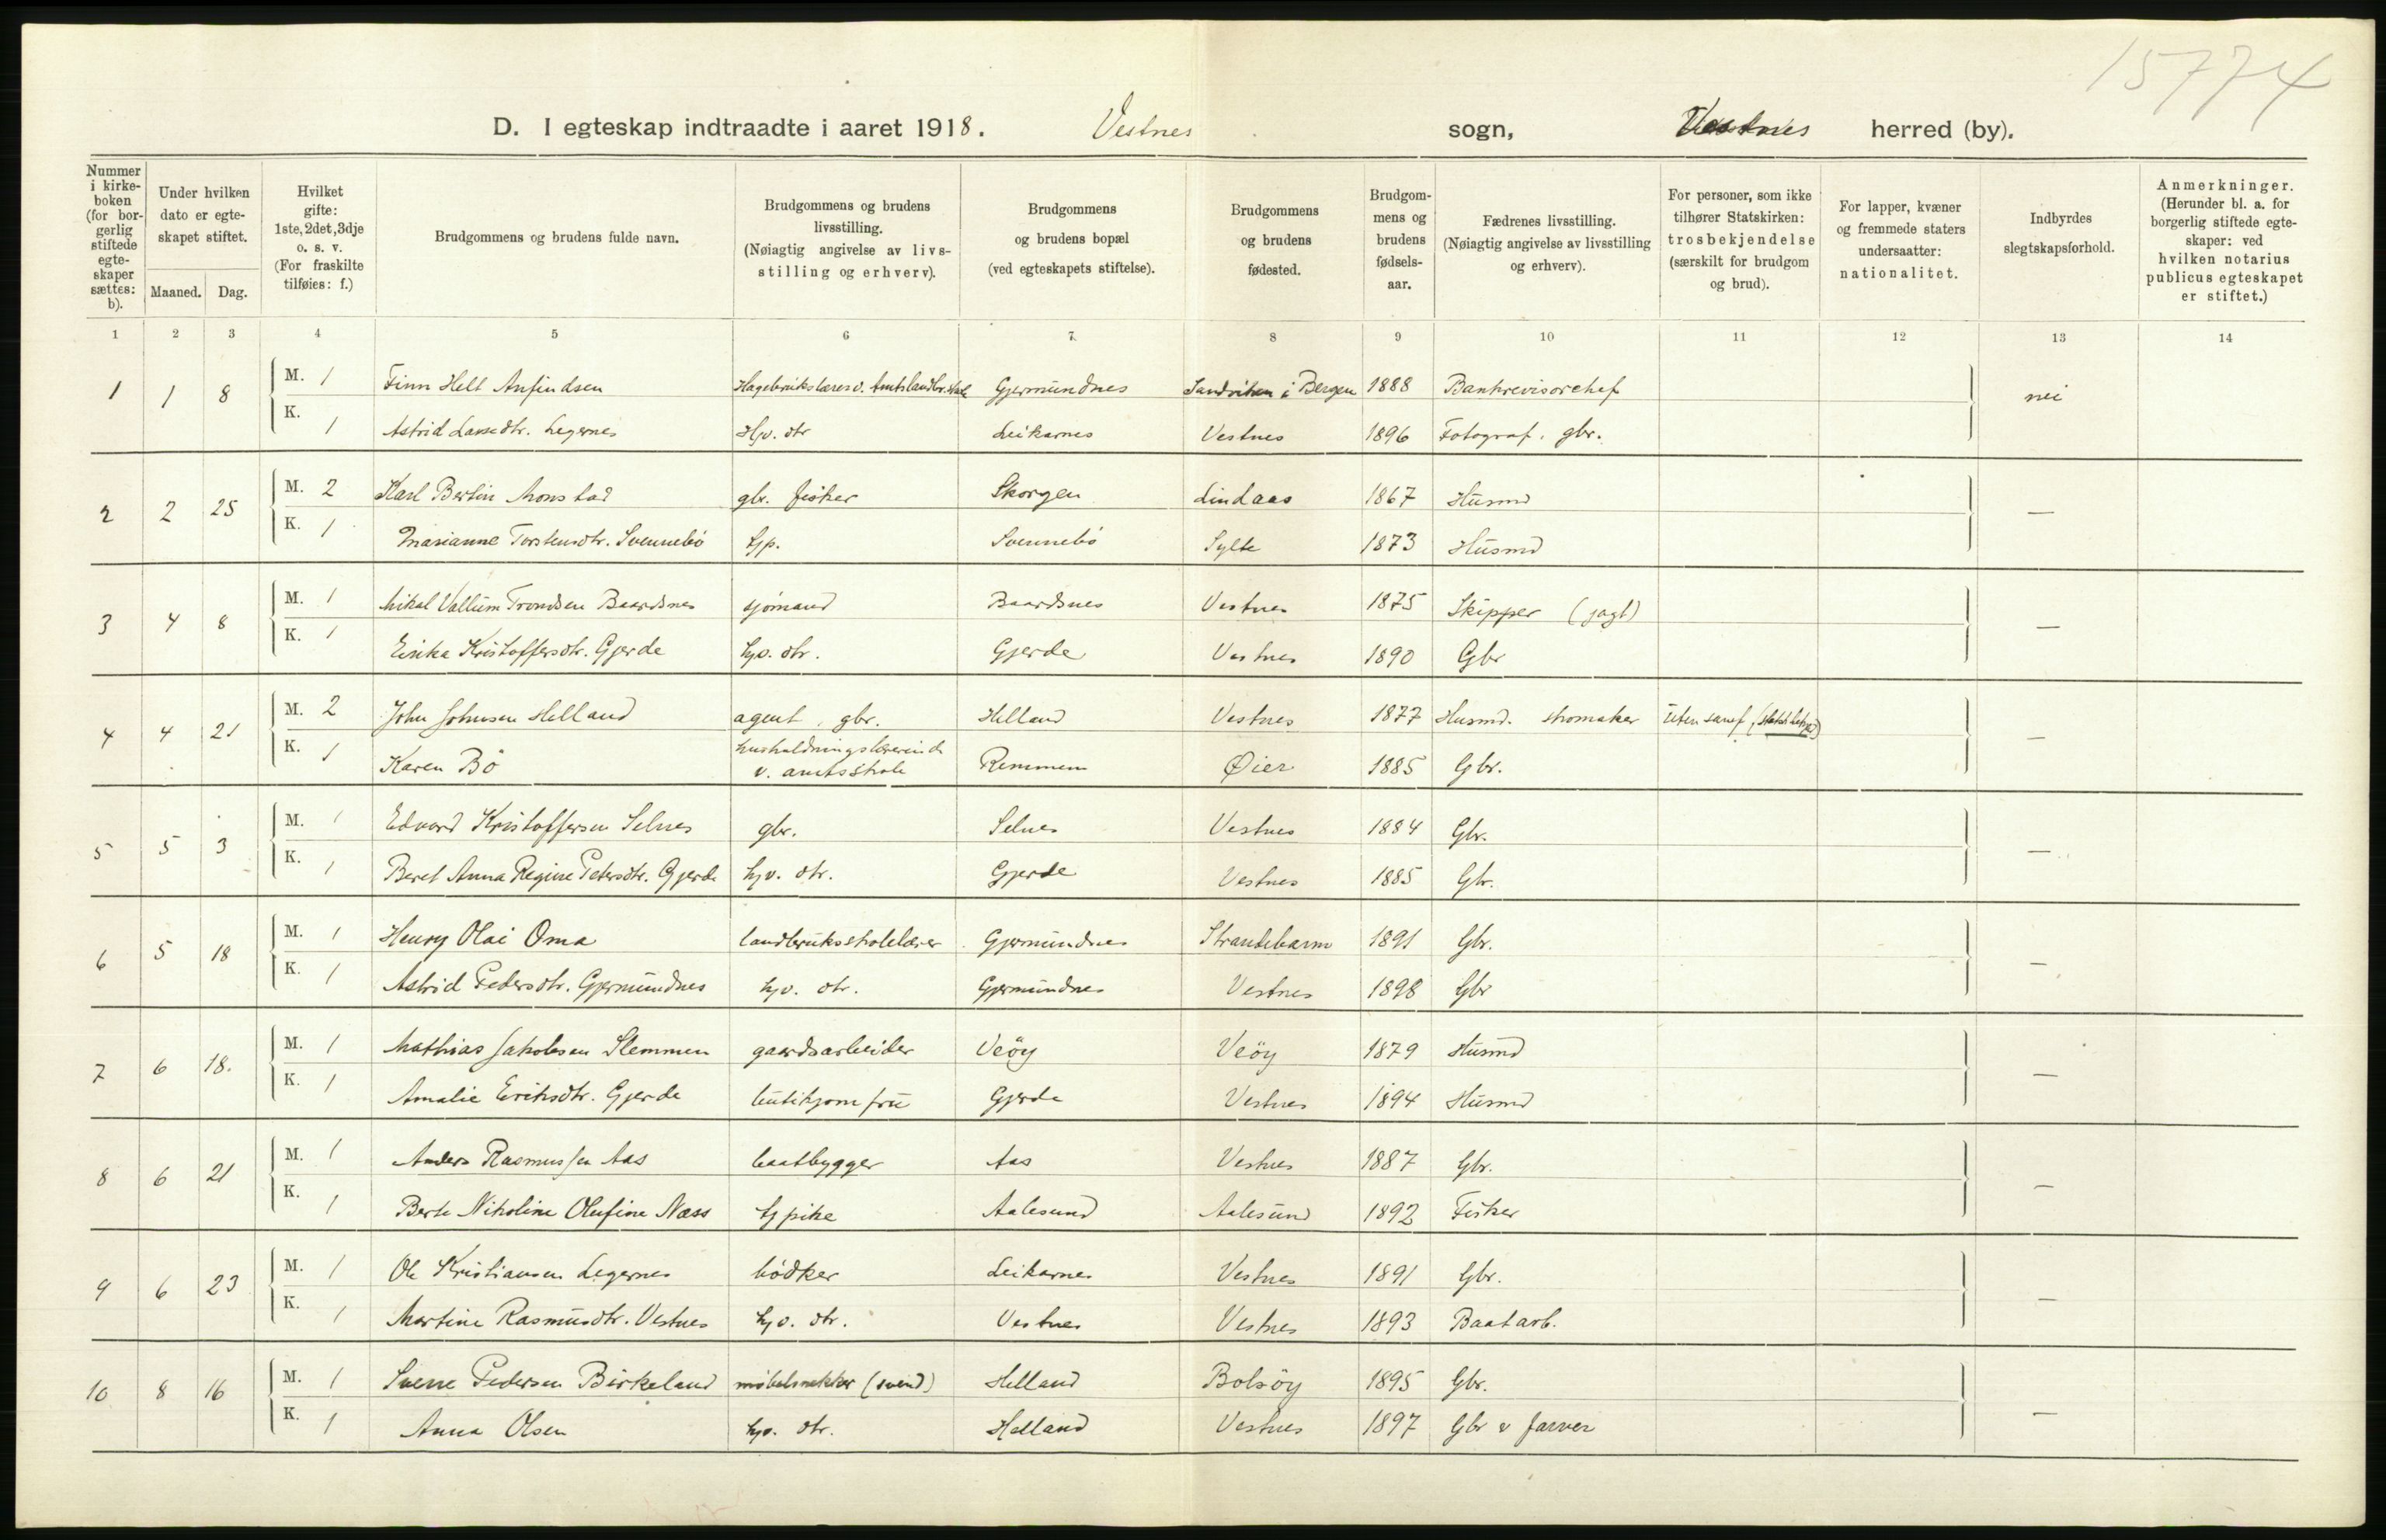 15774
D. I egteskap indtraadte i aaret 1918. Vestnes sogn, Vestnes herred (by).
Nummer i kirke-boken (for bor-gerlig stiftede egte-skaper sættes: b).
Under hvilken dato er egte-skapet stiftet.
Maaned. Dag.
Hvilket gifte: 1ste, 2det, 3dje o. s. v. (For fraskilte tilføies: f.)
Brudgommens og brudens fulde navn.
Brudgommens og brudens livsstilling. (Nøiagtig angivelse av livs-stilling og erhverv).
Brudgommens og brudens bopæl (ved egteskapets stiftelse).
Brudgommens og brudens fødested.
Brudgom-mens og brudens fødsels-aar.
Fædrenes livsstilling. (Nøiagtig angivelse av livsstilling og erhverv).
For personer, som ikke tilhører Statskirken: trosbekjendelse (særskilt for brudgom og brud).
For lapper, kvæner og fremmede staters undersaatter: nationalitet.
Indbyrdes slegtskapsforhold.
Anmerkninger. (Herunder bl. a. for borgerlig stiftede egte-skaper: ved hvilken notarius publicus egteskapet er stiftet.)
1 2 3 4 5 6 7. 8 9 10 11 12 13 14
1 1 8 M. 1 Finn Helt Anfindsen Hagebrukslærer v. Amtslandbr.skole Gjermundnes Sandviken i Bergen 1888 Bankrevisorchef nei
K. 1 Astrid Larsdtr. Legernes Hjv. dtr Leikarnes Vestnes 1896 Fotograf, gbr.
2 2 25 M. 2 Karl Bertin Monstad gbr. fisker Skorgen Lindaas 1867 Husmd —
K. 1 Marianne Torstensdtr. Svennebö tjp. Svennebö Sylte 1873 Husmd
3 4 8 M. 1 Mikal Vallum Trondsen Baardsnes sjömand Baardsnes Vestnes 1875 Skipper (jagt) —
K. 1 Erika Kristoffersdtr. Gjerde hjv. dtr. Gjerde Vestnes 1890 Gbr
4 4 21 M. 2 John Johnsen Helland agent, gbr. Helland Vestnes 1877 Husmd. skomaker uten samf. —
K. 1 Karen Bö husholdningslærerinde v. amtsskole Remmem Øier 1885 Gbr.
5 5 3 M. 1 Edvard Kristoffersen Selnes gbr. Selnes Vestnes 1884 Gbr. —
K. 1 Beret Anna Regine Petersdtr. Gjerde hjv. dtr. Gjerde Vestnes 1885 Gbr.
6 5 18 M. 1 Henry Olai Oma landbruksskolelærer Gjermundnes Strandebarm 1891 Gbr. —
K. 1 Astrid Pedersdtr. Gjermundnes hjv. dtr. Gjermundnes Vestnes 1898 Gbr
7 6 18. M. 1 Mathias Jakobsen Slemmen gaardsarbeider Veöy Veöy 1879 Husmd —
K. 1 Amalie Eriksdtr. Gjerde butikjomfru Gjerde Vestnes 1894 Husmd
8 6 21 M. 1 Anders Rasmussen Aas baatbygger Aas Vestnes 1887 Gbr. —
K. 1 Berte Nikoline Olufine Næss tjpike Aalesund Aalesund 1892 Fisker
9 6 23 M. 1 Ole Kristiansen Legernes bödker Leikarnes Vestnes 1891 Gbr. —
K. 1 Martine Rasmusdtr. Vestnes hjv. dtr. Vestnes Vestnes 1893 Baatarb.
10 8 16 M. 1 Sverre Pedersen Birkeland möbelsnekker (svend) Helland Bolsöy 1895 Gbr. —
K. 1 Anna Olsen hjv. dtr. Helland Vestnes 1897 Gbr & farver